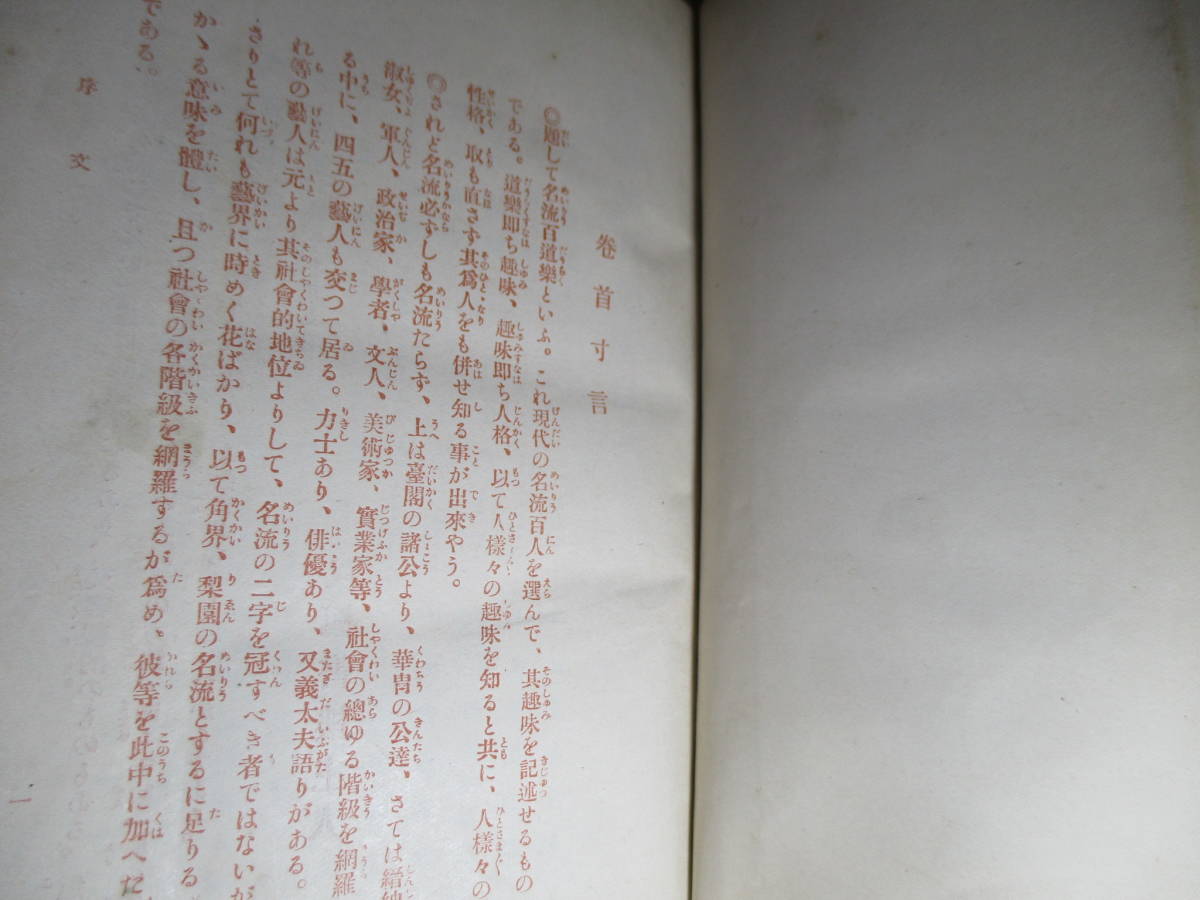 卷首寸言
◎題して名流百道樂といふ。これ現代の名流百人を選んで、其趣味を記述せるもの
である。道樂即ち趣味、趣味即ち人格、以て人樣々の趣味を知ると共に、人樣々の
性格、取も直さず其爲人をも併せ知る事が出來やう。
◎されど名流必ずしも名流たらず、上は臺閣の諸公より、華冑の公達、さては縉紳
淑女、軍人、政治家、學者、文人、美術家、實業家等、社會の總ゆる階級を網羅
る中に、四五の藝人も交つて居る。力士あり、俳優あり、又義太夫語りがある。
れ等の藝人は元より其社會的地位よりして、名流の二字を冠すべき者ではないが
さりとて何れも藝界に時めく花ばかり、以て角界、梨園の名流とするに足りる
かゝる意味を體し、且つ社會の各階級を網羅するが爲め、彼等を此中に加へた
である。
序文
一